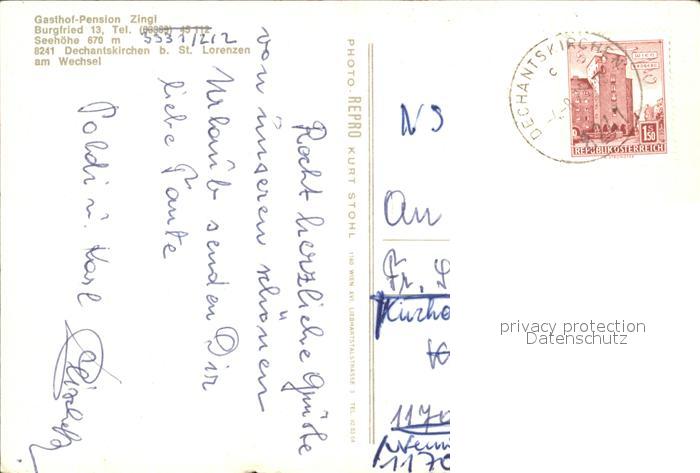 Gasthof-Pension Zingl
Burgfried 13, Tel. (03339) 45 112
3331/212
Seehöhe 670 m
8241 Dechantskirchen b. St. Lorenzen
am Wechsel
Recht herzliche Grüße
von unseren schönen
Urlaub senden Dir
liebe Tante
Poldi u. Karl
PHOTO-REPRO KURT STOHL
1160 WIEN XVI, LIEBHARTSTALSTRASSE
TEL.
DECHANTSKIRCHEN
WIEN
1.50
REPUBLIK ÖSTERREICH
NS
An
Fr.
1170
1170
privacy protection
Datenschutz